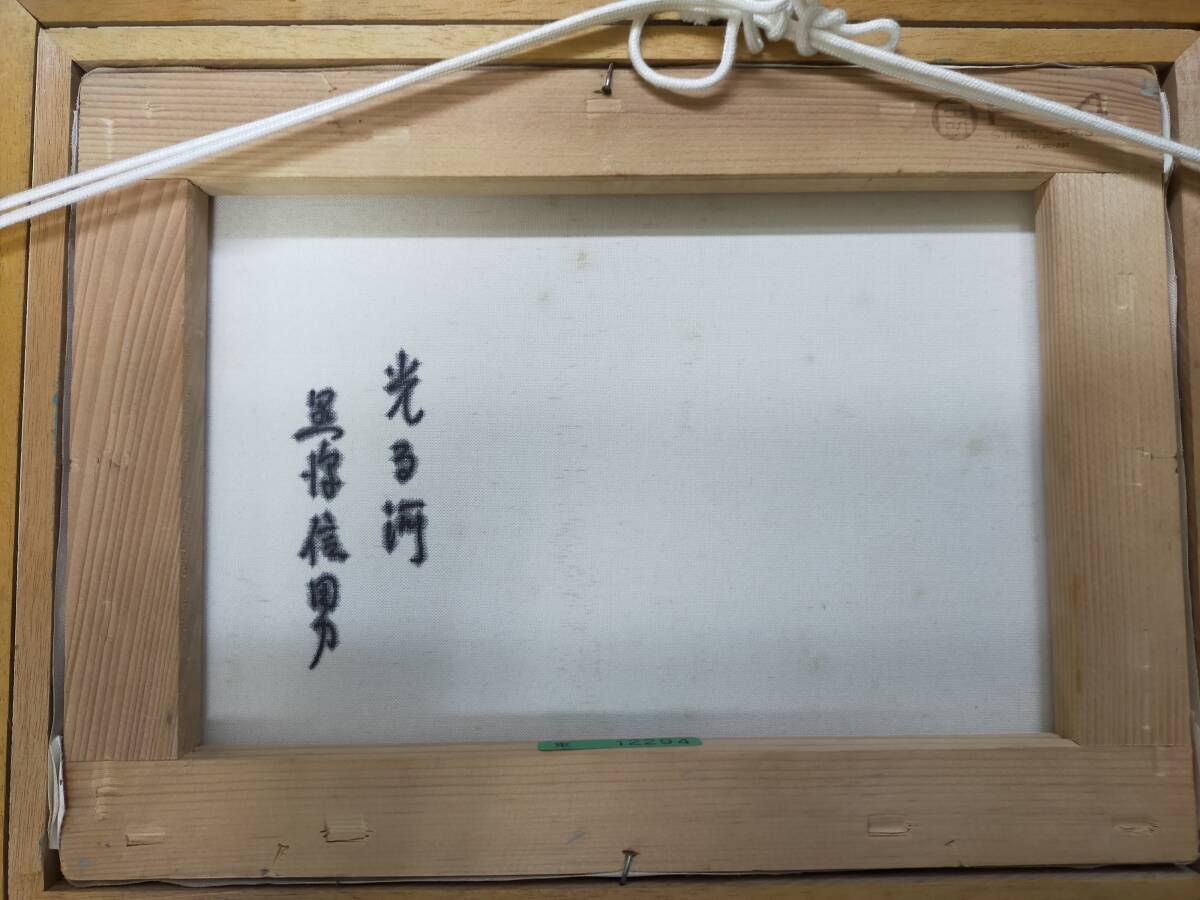 光る河
黒澤信男
12294